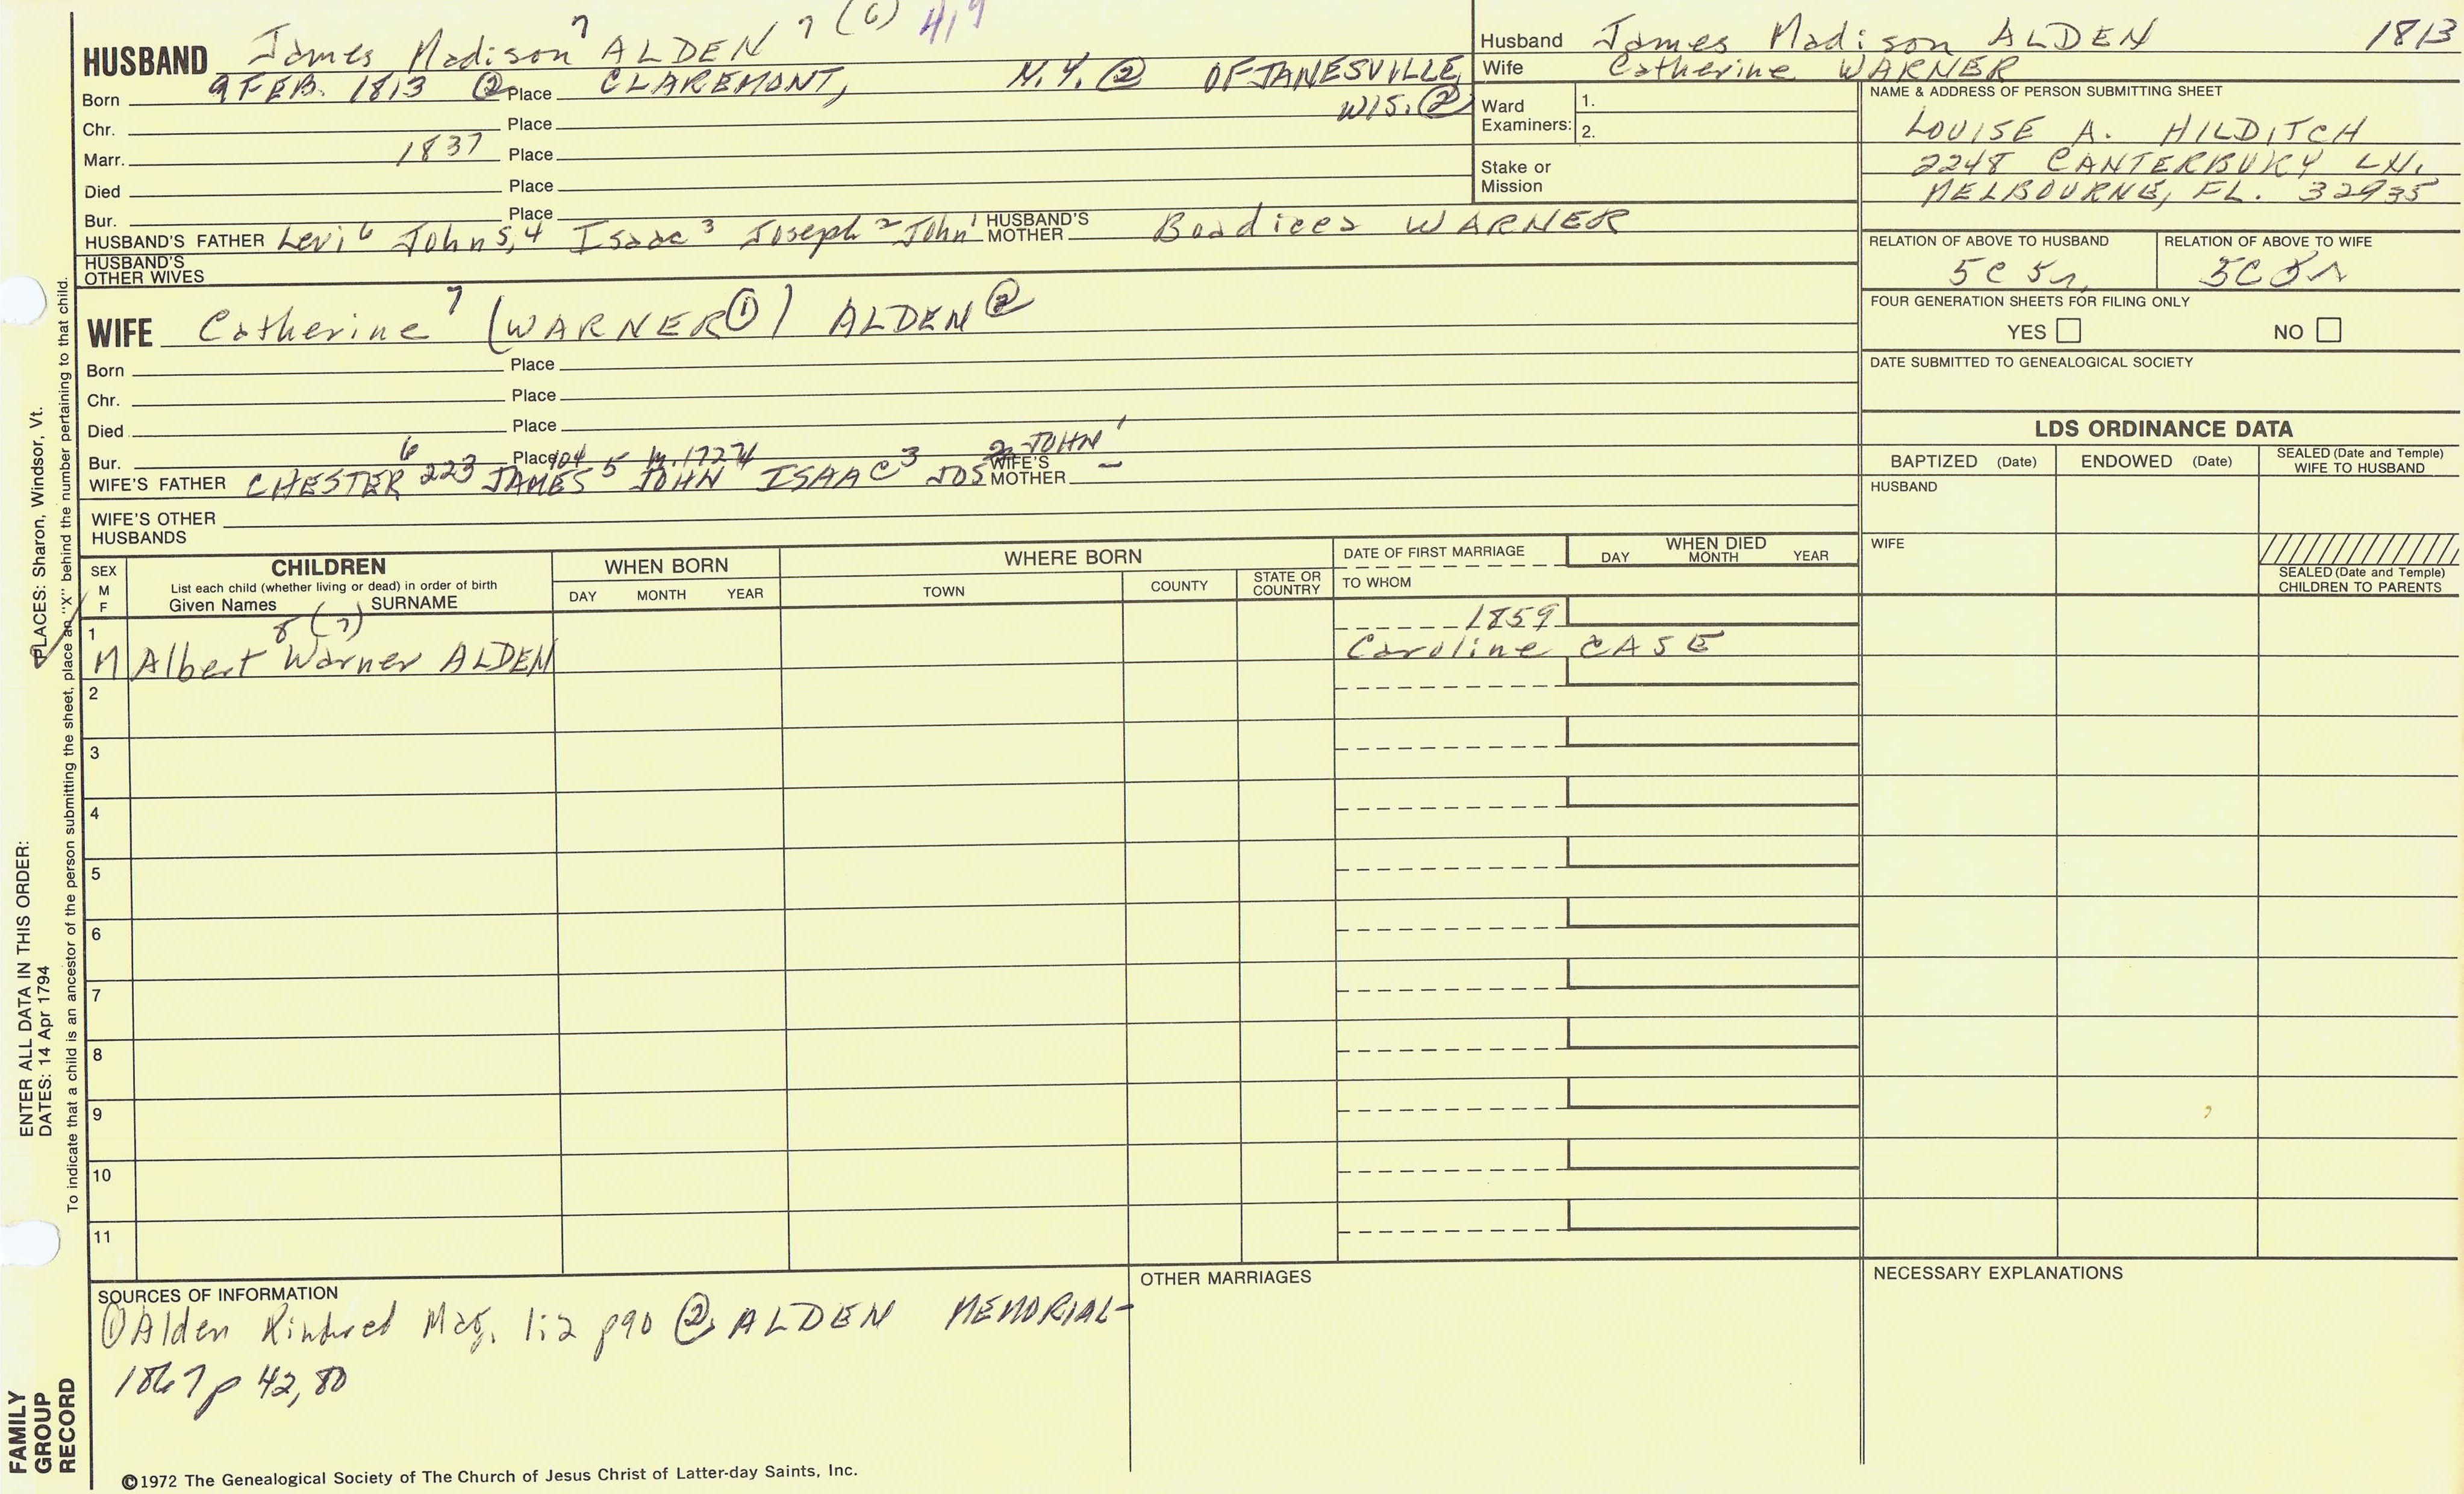 HUSBAND James Madison 7 ALDEN 7 (6) 419
Born 9 FEB. 1813 ② Place CLAREMONT, N.Y. ② OF JANESVILLE, WIS. ②
Chr. Place
Marr. 1837 Place
Died Place
Bur. Place
HUSBAND'S FATHER Levi 6 John 5,4 Isaac 3 Joseph 2 John 1 HUSBAND'S MOTHER Boadicea WARNER
HUSBAND'S OTHER WIVES
WIFE Catherine 7 (WARNER ①) ALDEN ②
Born Place
Chr. Place
Died Place
Bur. Place
WIFE'S FATHER CHESTER 6 223 JAMES 5 104 JOHN m. 1727 4 ISAAC 3 JOS 2 JOHN 1 WIFE'S MOTHER —
WIFE'S OTHER HUSBANDS
Husband James Madison ALDEN 1813
Wife Catherine WARNER
Ward Examiners: 1.
2.
Stake or Mission
NAME & ADDRESS OF PERSON SUBMITTING SHEET
LOUISE A. HILDITCH
2248 CANTERBURY LN.
MELBOURNE, FL. 32935
RELATION OF ABOVE TO HUSBAND RELATION OF ABOVE TO WIFE
5C 5r
FOUR GENERATION SHEETS FOR FILING ONLY
YES NO
DATE SUBMITTED TO GENEALOGICAL SOCIETY
LDS ORDINANCE DATA
BAPTIZED (Date) ENDOWED (Date) SEALED (Date and Temple) WIFE TO HUSBAND
HUSBAND
WIFE
SEALED (Date and Temple) CHILDREN TO PARENTS
SEX M F CHILDREN
List each child (whether living or dead) in order of birth
Given Names SURNAME
WHEN BORN
DAY MONTH YEAR
WHERE BORN
TOWN COUNTY STATE OR COUNTRY
DATE OF FIRST MARRIAGE
TO WHOM
WHEN DIED
DAY MONTH YEAR
1 8 (7) 1859
M Albert Warner ALDEN Caroline CASE
2
3
4
5
6
7
8
9
10
11
SOURCES OF INFORMATION
① Alden Kindred Mag. 1:2 p90 ② ALDEN MEMORIAL-
1867 p 42, 80
OTHER MARRIAGES
NECESSARY EXPLANATIONS
©1972 The Genealogical Society of The Church of Jesus Christ of Latter-day Saints, Inc.
FAMILY GROUP RECORD
ENTER ALL DATA IN THIS ORDER:
DATES: 14 Apr 1794
PLACES: Sharon, Windsor, Vt.
To indicate that a child is an ancestor of the person submitting the sheet, place an "X" behind the number pertaining to that child.